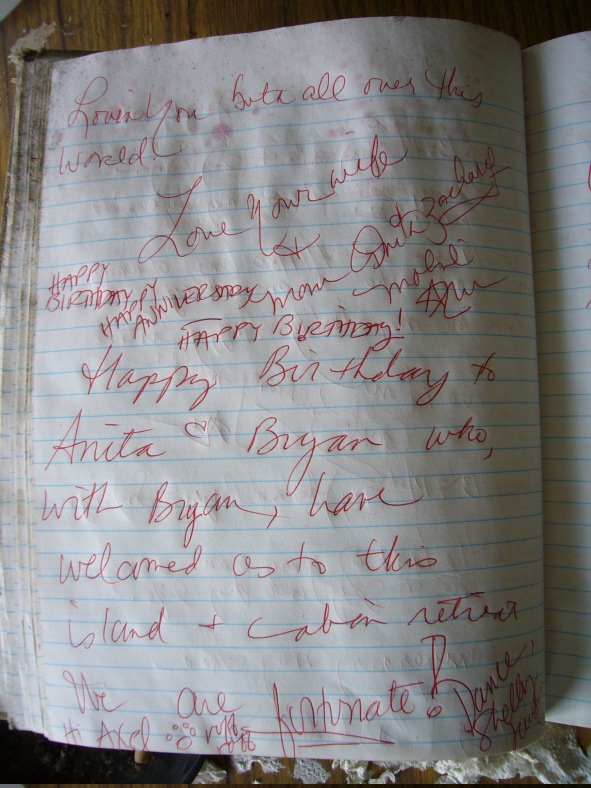 Lovin You butt all over this
World
Love Your wife
+ Anita + Zachary
HAPPY
BIRTHDAY
HAPPY
ANNIVERSARY mom
HAPPY BIRTHDAY!
Happy Birthday to
Anita ♡ Bryan who,
with Bryan, have
welcomed us to this
island + cabin retreat
We are fortunate!
Hi Axel ruff
Shelly